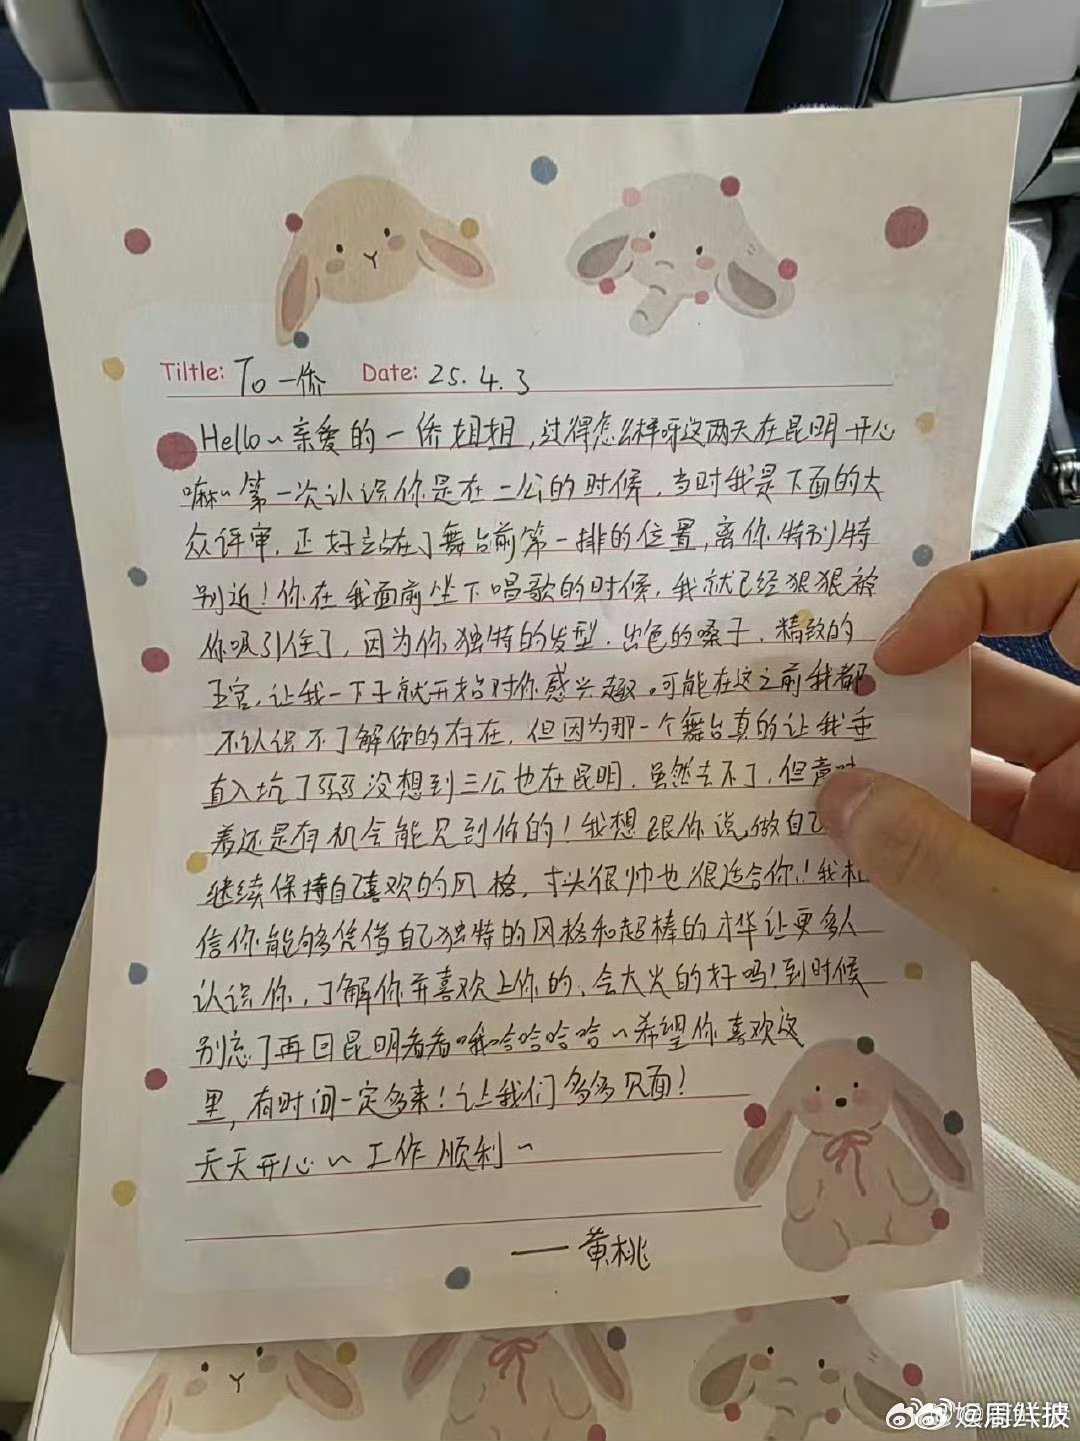 Tiltle: To 一侨 Date: 25.4.3
Hello~亲爱的一侨姐姐,过得怎么样呀这两天在昆明开心
嘛~第一次认识你是在二公的时候,当时我是下面的大
众评审,正好站在了舞台前第一排的位置,离你特别特
别近!你在我面前坐下唱歌的时候,我就已经狠狠被
你吸引住了,因为你独特的发型.出色的嗓子.精致的
五官,让我一下子就开始对你感兴趣。可能在这之前我都
不认识不了解你的存在,但因为那一个舞台真的让我垂
直入坑了 没想到三公也在昆明.虽然去不了,但意味
着还是有机会能见到你的!我想跟你说,做自己
继续保持自己喜欢的风格,寸头很帅也很适合你!我相
信你能够凭借自己独特的风格和超棒的才华让更多人
认识你,了解你并喜欢上你的,会大火的好吗!到时候
别忘了再回昆明看看哦哈哈哈哈~希望你喜欢这
里,有时间一定多来!让我们多多见面!
天天开心~工作顺利~
——黄桃
周鲜披